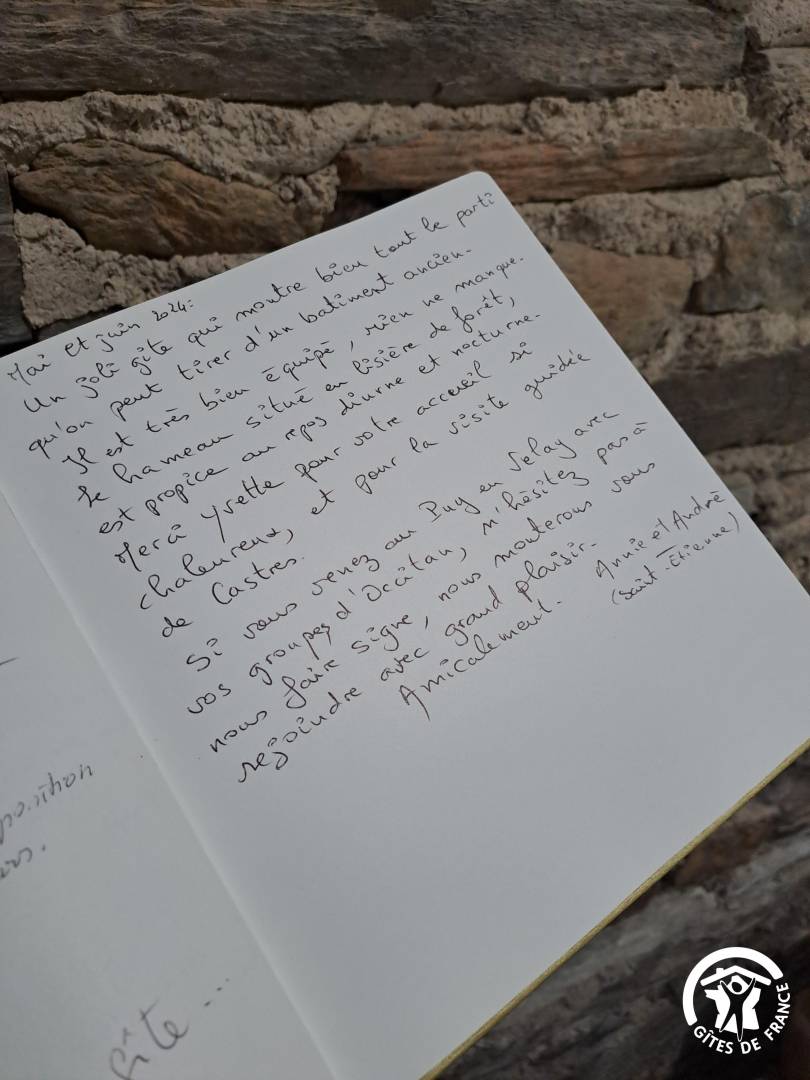 Mai et juin 2024:
Un joli gîte qui montre bien tout le parti
qu'on peut tirer d'un batiment ancien.
Il est très bien équipé, rien ne manque.
Le hameau situé en lisière de forêt,
est propice au repos diurne et nocturne.
Merci Yvette pour votre accueil si
chaleureux, et pour la visite guidée
de Castres.
Si vous venez au Puy en Velay avec
vos groupes d'Occitan, n'hésitez pas à
nous faire signe, nous monterons vous
rejoindre avec grand plaisir.
Amicalement. Annie et André
(Saint-Étienne)
GÎTES DE FRANCE